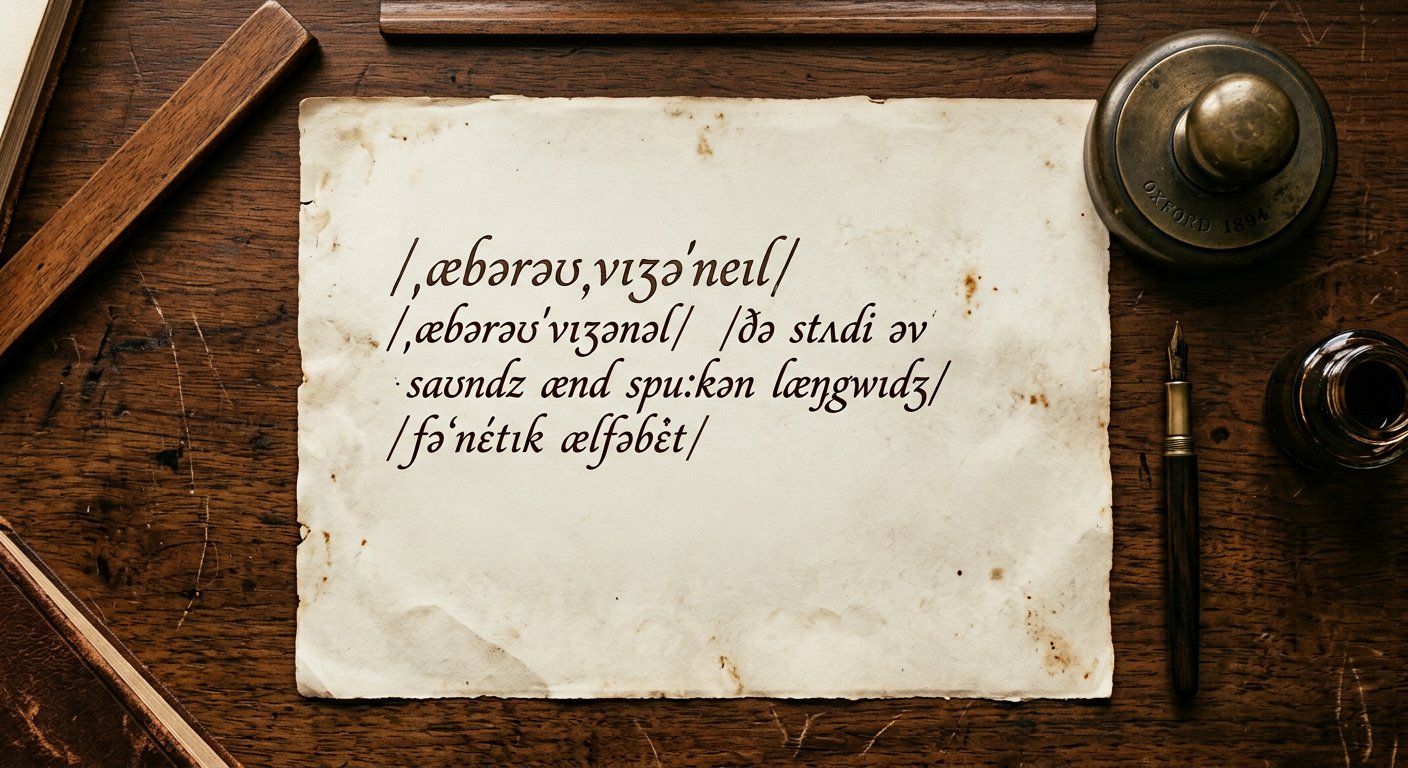 /ˌæbərəʊˌvɪʒəˈneɪl/
/ˌæbərəʊˈvɪʒənəl/ /ðə stʌdi əv
saʊndz ænd spuːkən læŋgwɪdʒ/
/fəʻnέtɪk ælfəbἐt/
OXFORD 1894